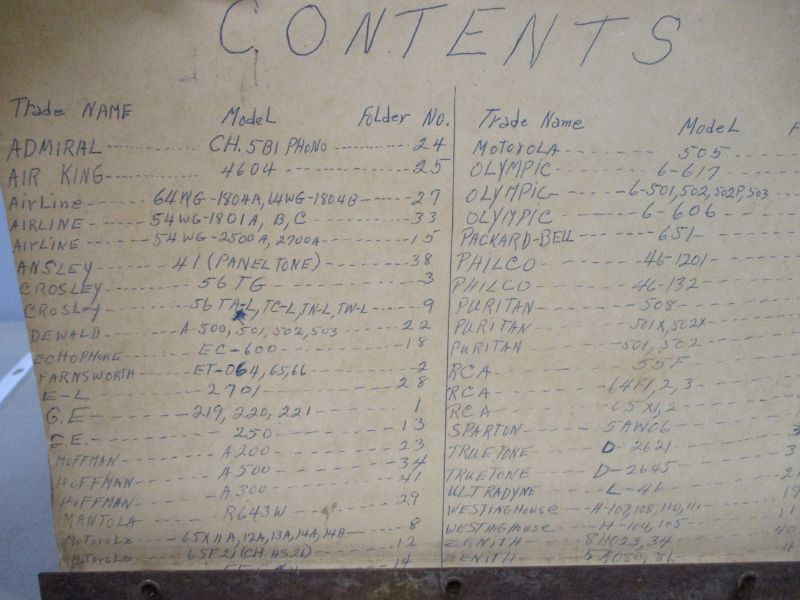 CONTENTS
Trade NAME Model Folder No.
ADMIRAL CH. 5B1 PHONO 24
AIR KING 4604 25
AirLine 64WG-1804A, 64WG-1804B 27
AIRLINE 54WG-1801A, B, C 33
AirLine 54WG-2500A, 2700A 15
ANSLEY 41 (PANELTONE) 38
CROSLEY 56TG 3
CROSLEY 56TA-L, TC-L, TN-L, TW-L 9
DEWALD A-500, 501, 502, 503 22
ECHOPHONE EC-600 18
FARNSWORTH ET-064, 65, 66 2
E-L 2701 28
G.E. 219, 220, 221 1
G.E. 250 13
HOFFMAN A200 23
HOFFMAN A500 34
HOFFMAN A300 41
MANTOLA R643W 29
MOTOROLA 65X11A, 12A, 13A, 14A, 14B 8
MOTOROLA 65F21 (CH. HS26) 12
14
Trade Name Model
MOTOROLA 505
OLYMPIC 6-617
OLYMPIC 6-501, 502, 502P, 503
OLYMPIC 6-606
PACKARD-BELL 651
PHILCO 46-1201
PHILCO 46-132
PURITAN 508
PURITAN 501X, 502X
PURITAN 501, 502
RCA 55F
RCA 64F1, 2, 3
RCA 65X1, 2
SPARTON 5AW06
TRUETONE D-2621
TRUETONE D-2645
ULTRADYNE L-46
WESTINGHOUSE H-107, 108, 110, 111
WESTINGHOUSE H-104, 105
ZENITH 8H023, 34
ZENITH